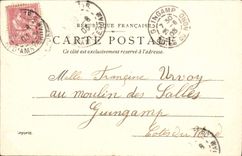 RÉPUBLIQUE FRANÇAISE
CARTE POSTALE
Ce côté est exclusivement réservé à l'adresse
GUINGAMP
Melle Francine Urvoy
au moulin des Salles
Guingamp
Côtes du Nord